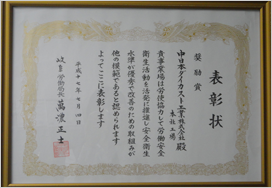 表彰状
奨励賞
中日本ダイカスト工業株式会社
本社工場 殿
貴事業場は労使協力して労働安全
衛生活動を活発に推進し安全衛生
水準が優秀で改善のための取組みが
他の模範であると認められます
よってここに表彰します
平成十七年七月四日
岐阜労働局長